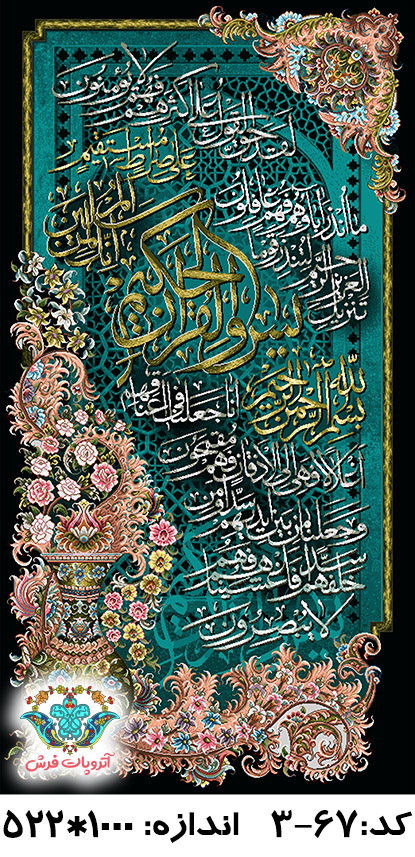 بسم الله الرحمن الرحيم
يس والقرآن الحكيم
انك لمن المرسلين
على صراط مستقيم
تنزيل العزيز الرحيم لتنذر قوما
ما انذر آباؤهم فهم غافلون
لقد حق القول على اكثرهم فهم لا يؤمنون
انا جعلنا في اعناقهم
اغلالا فهي الى الاذقان فهم مقمحون
وجعلنا من بين ايديهم سدا ومن
خلفهم سدا فاغشيناهم فهم
لا يبصرون
آتروپات فرش
کد:۶۷-۳ اندازه: ۱۰۰۰*۵۲۲